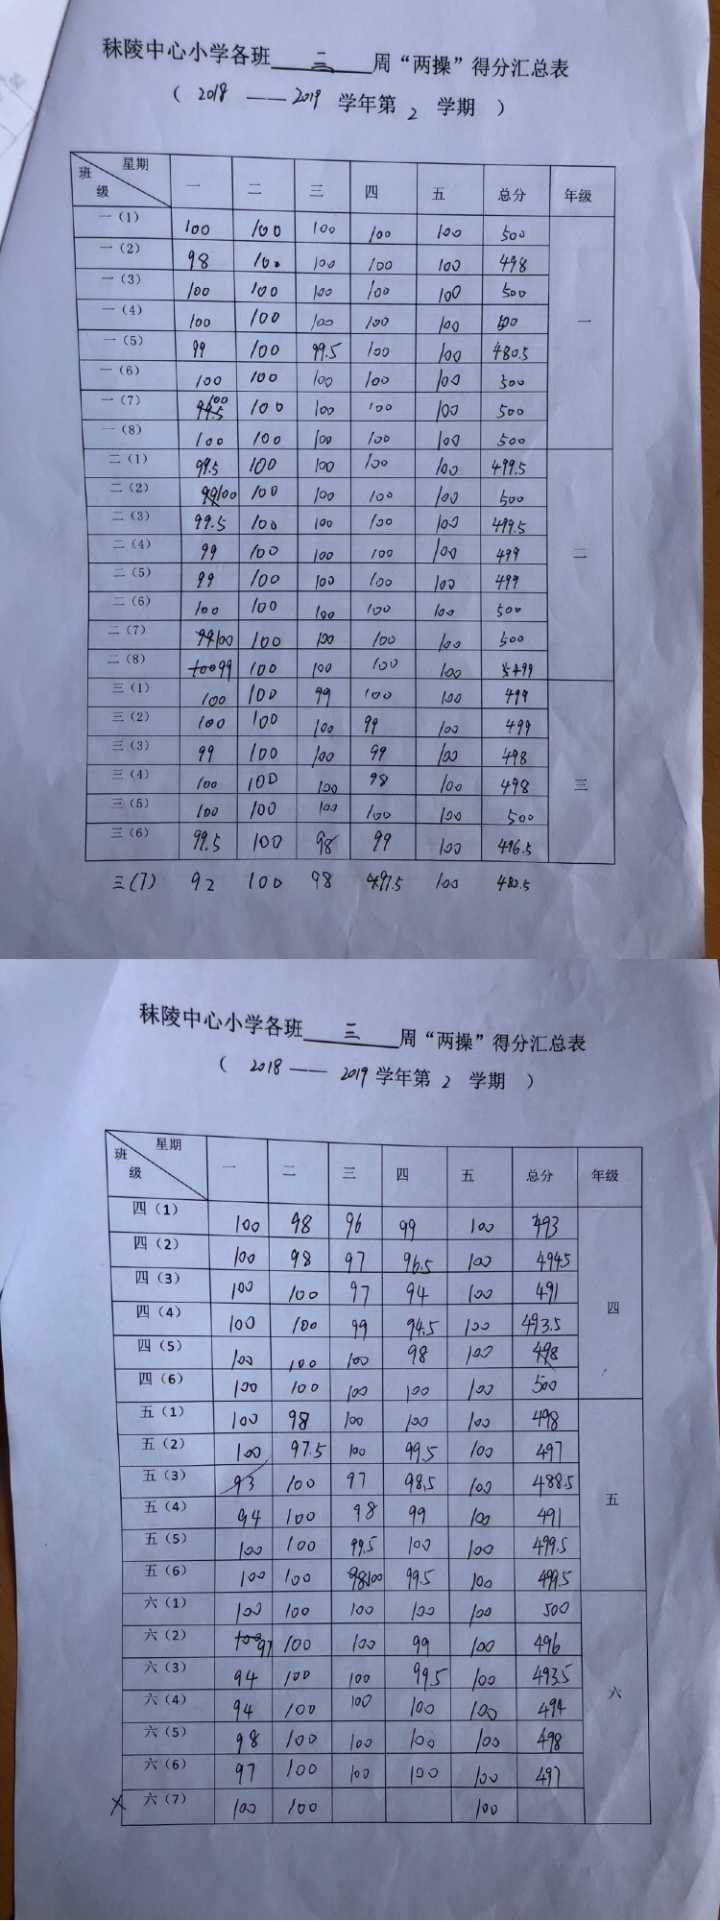 秣陵中心小学各班 三 周“两操”得分汇总表
（ 2018 —— 2019 学年第 2 学期 ）
班级 星期 一 二 三 四 五 总分 年级
一（1） 100 100 100 100 100 500
一（2） 98 100 100 100 100 498
一（3） 100 100 100 100 100 500
一（4） 100 100 100 100 100 500 一
一（5） 99 100 99.5 100 100 480.5
一（6） 100 100 100 100 100 500
一（7） 99.5 100 100 100 100 100 500
一（8） 100 100 100 100 100 500
二（1） 99.5 100 100 100 100 499.5
二（2） 99 100 100 100 100 100 500
二（3） 99.5 100 100 100 100 499.5
二（4） 99 100 100 100 100 499 二
二（5） 99 100 100 100 100 499
二（6） 100 100 100 100 100 500
二（7） 99 100 100 100 100 100 500
二（8） 100 99 100 100 100 100 499
三（1） 100 100 99 100 100 499
三（2） 100 100 100 99 100 499
三（3） 99 100 100 99 100 498
三（4） 100 100 100 98 100 498 三
三（5） 100 100 100 100 100 500
三（6） 99.5 100 98 99 100 496.5
三(7) 92 100 98 97.5 100 482.5
秣陵中心小学各班 三 周“两操”得分汇总表
（ 2018 —— 2019 学年第 2 学期 ）
班级 星期 一 二 三 四 五 总分 年级
四（1） 100 98 96 99 100 493
四（2） 100 98 97 96.5 100 494.5
四（3） 100 100 97 94 100 491
四（4） 100 100 99 94.5 100 493.5 四
四（5） 100 100 100 98 100 498
四（6） 100 100 100 100 100 500
五（1） 100 98 100 100 100 498
五（2） 100 97.5 100 99.5 100 497
五（3） 93 100 97 98.5 100 488.5
五（4） 94 100 98 99 100 491 五
五（5） 100 100 99.5 100 100 499.5
五（6） 100 100 98 100 99.5 100 499.5
六（1） 100 100 100 100 100 500
六（2） 100 97 100 100 99 100 496
六（3） 94 100 100 99.5 100 493.5
六（4） 94 100 100 100 100 494 六
六（5） 98 100 100 100 100 498
六（6） 97 100 100 100 100 497
六（7） 100 100 100